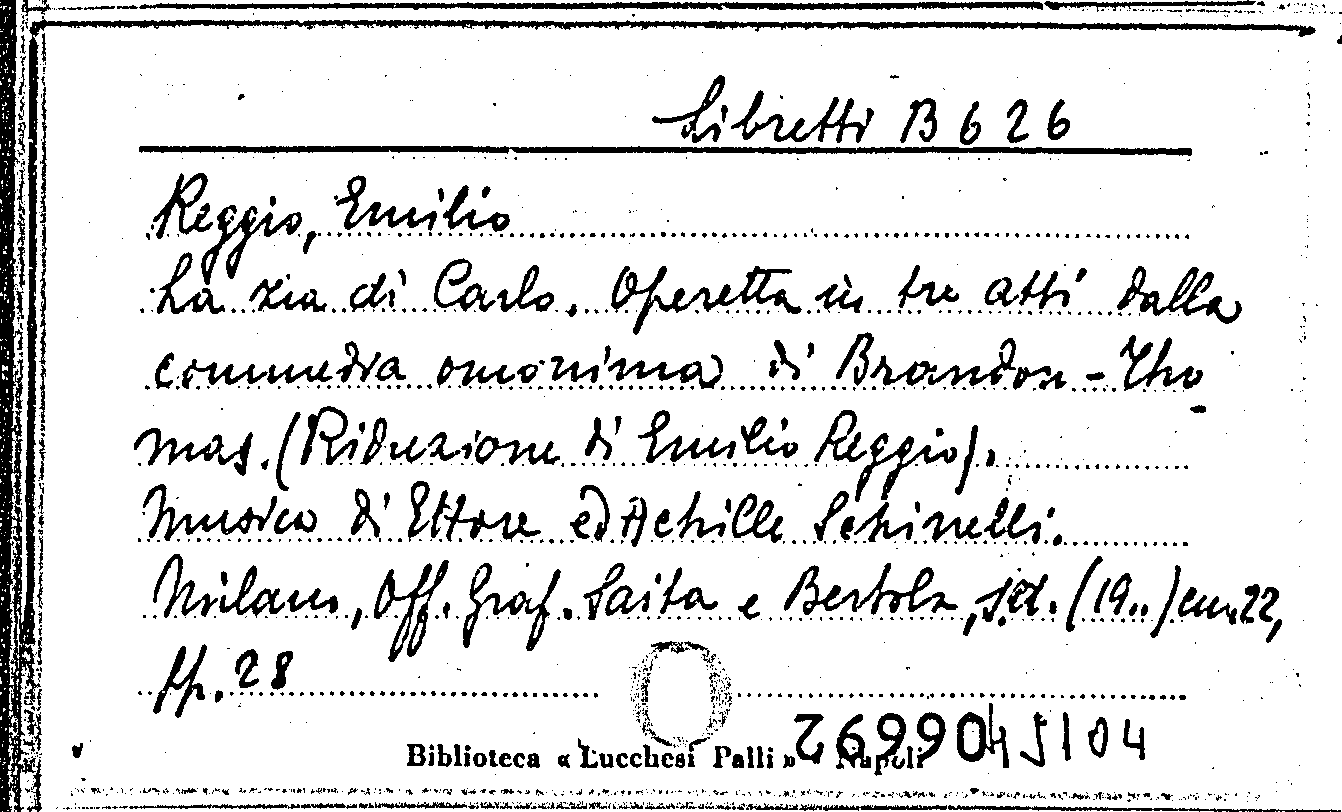 Libretti B 626
Reggio, Emilio
La zia di Carlo. Operetta in tre atti dalla
commedia omonima di Brandon - Tho
mas. (Riduzione di Emilio Reggio).
Musica di Ettore ed Achille Schinelli.
Milano, Off. Graf. Saita e Bertola, s.d. (19..) cm. 22,
pp. 28
Biblioteca « Lucchesi Palli » - Napoli